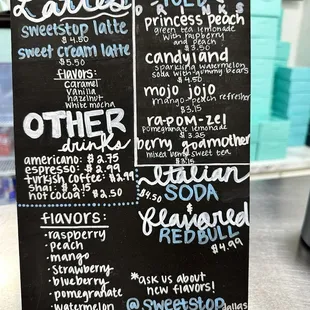 Lattes
sweetstop latte
$4.50
sweet cream latte
$5.50
flavors:
caramel
vanilla
hazelnut
white mocha
OTHER
drinks
americano: $2.75
espresso: $2.99
turkish coffee: $2.99
shai: $2.15
hot cocoa: $2.50
flavors:
·raspberry
·peach
·mango
·strawberry
·blueberry
·pomegranate
·watermelon
DRINKS
princess peach
green tea lemonade
with raspberry
and peach
$3.50
candyland
sparkling watermelon
soda with gummy bears
$4.50
mojo jojo
mango-peach refresher
$3.15
ra-pom-zel
pomegranate lemonade
$3.25
berry godmother
mixed berry sweet tea
$3.15
Italian
$4.50 SODA
&
flavored
RED BULL
$4.99
*ask us about
new flavors!
@sweetstopdallas